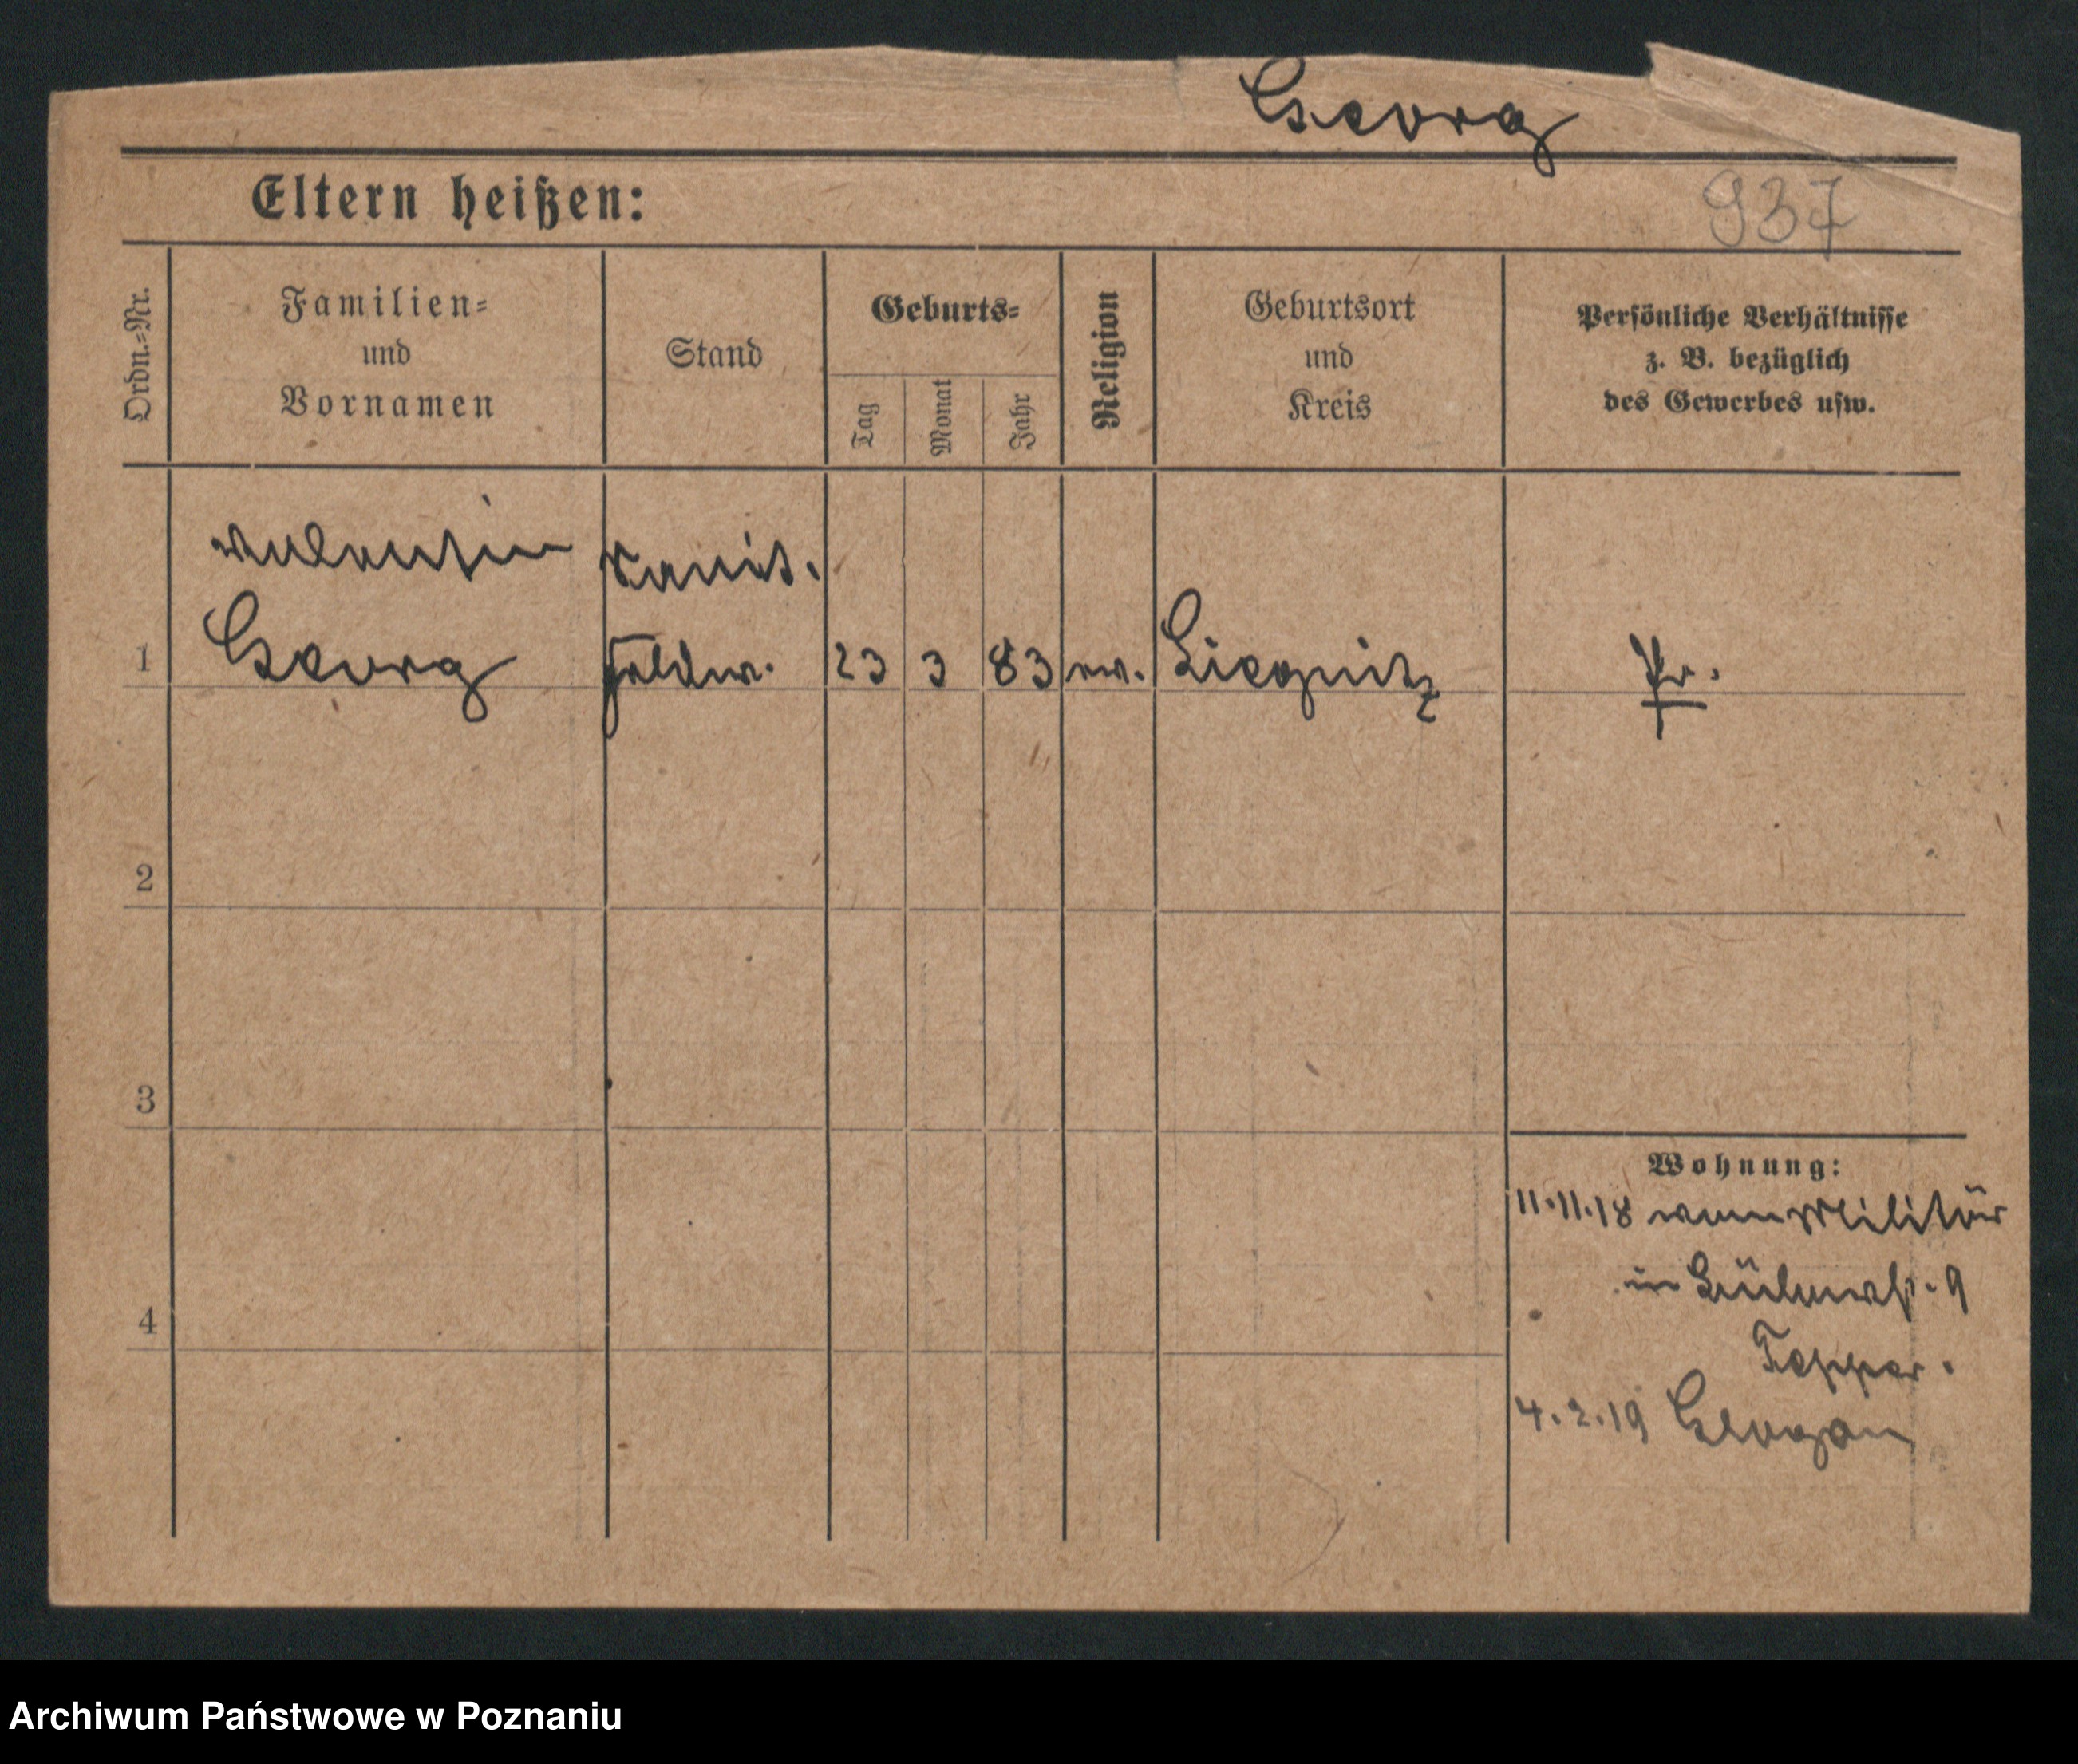 Georg
Eltern heißen:
937
Ordn.-Nr.
Familien-
und
Vornamen
Stand
Geburts-
Tag
Monat
Jahr
Religion
Geburtsort
und
Kreis
Persönliche Verhältnisse
z. B. bezüglich
des Gewerbes usw.
Valentin
Georg
Sanit.
Feldw.
23
3
83
ev.
Liegnitz
Pr.
1
2
3
4
Wohnung:
11.11.18 vom Militär
in 9
Tepper.
4.2.19 Glogau
Archiwum Państwowe w Poznaniu